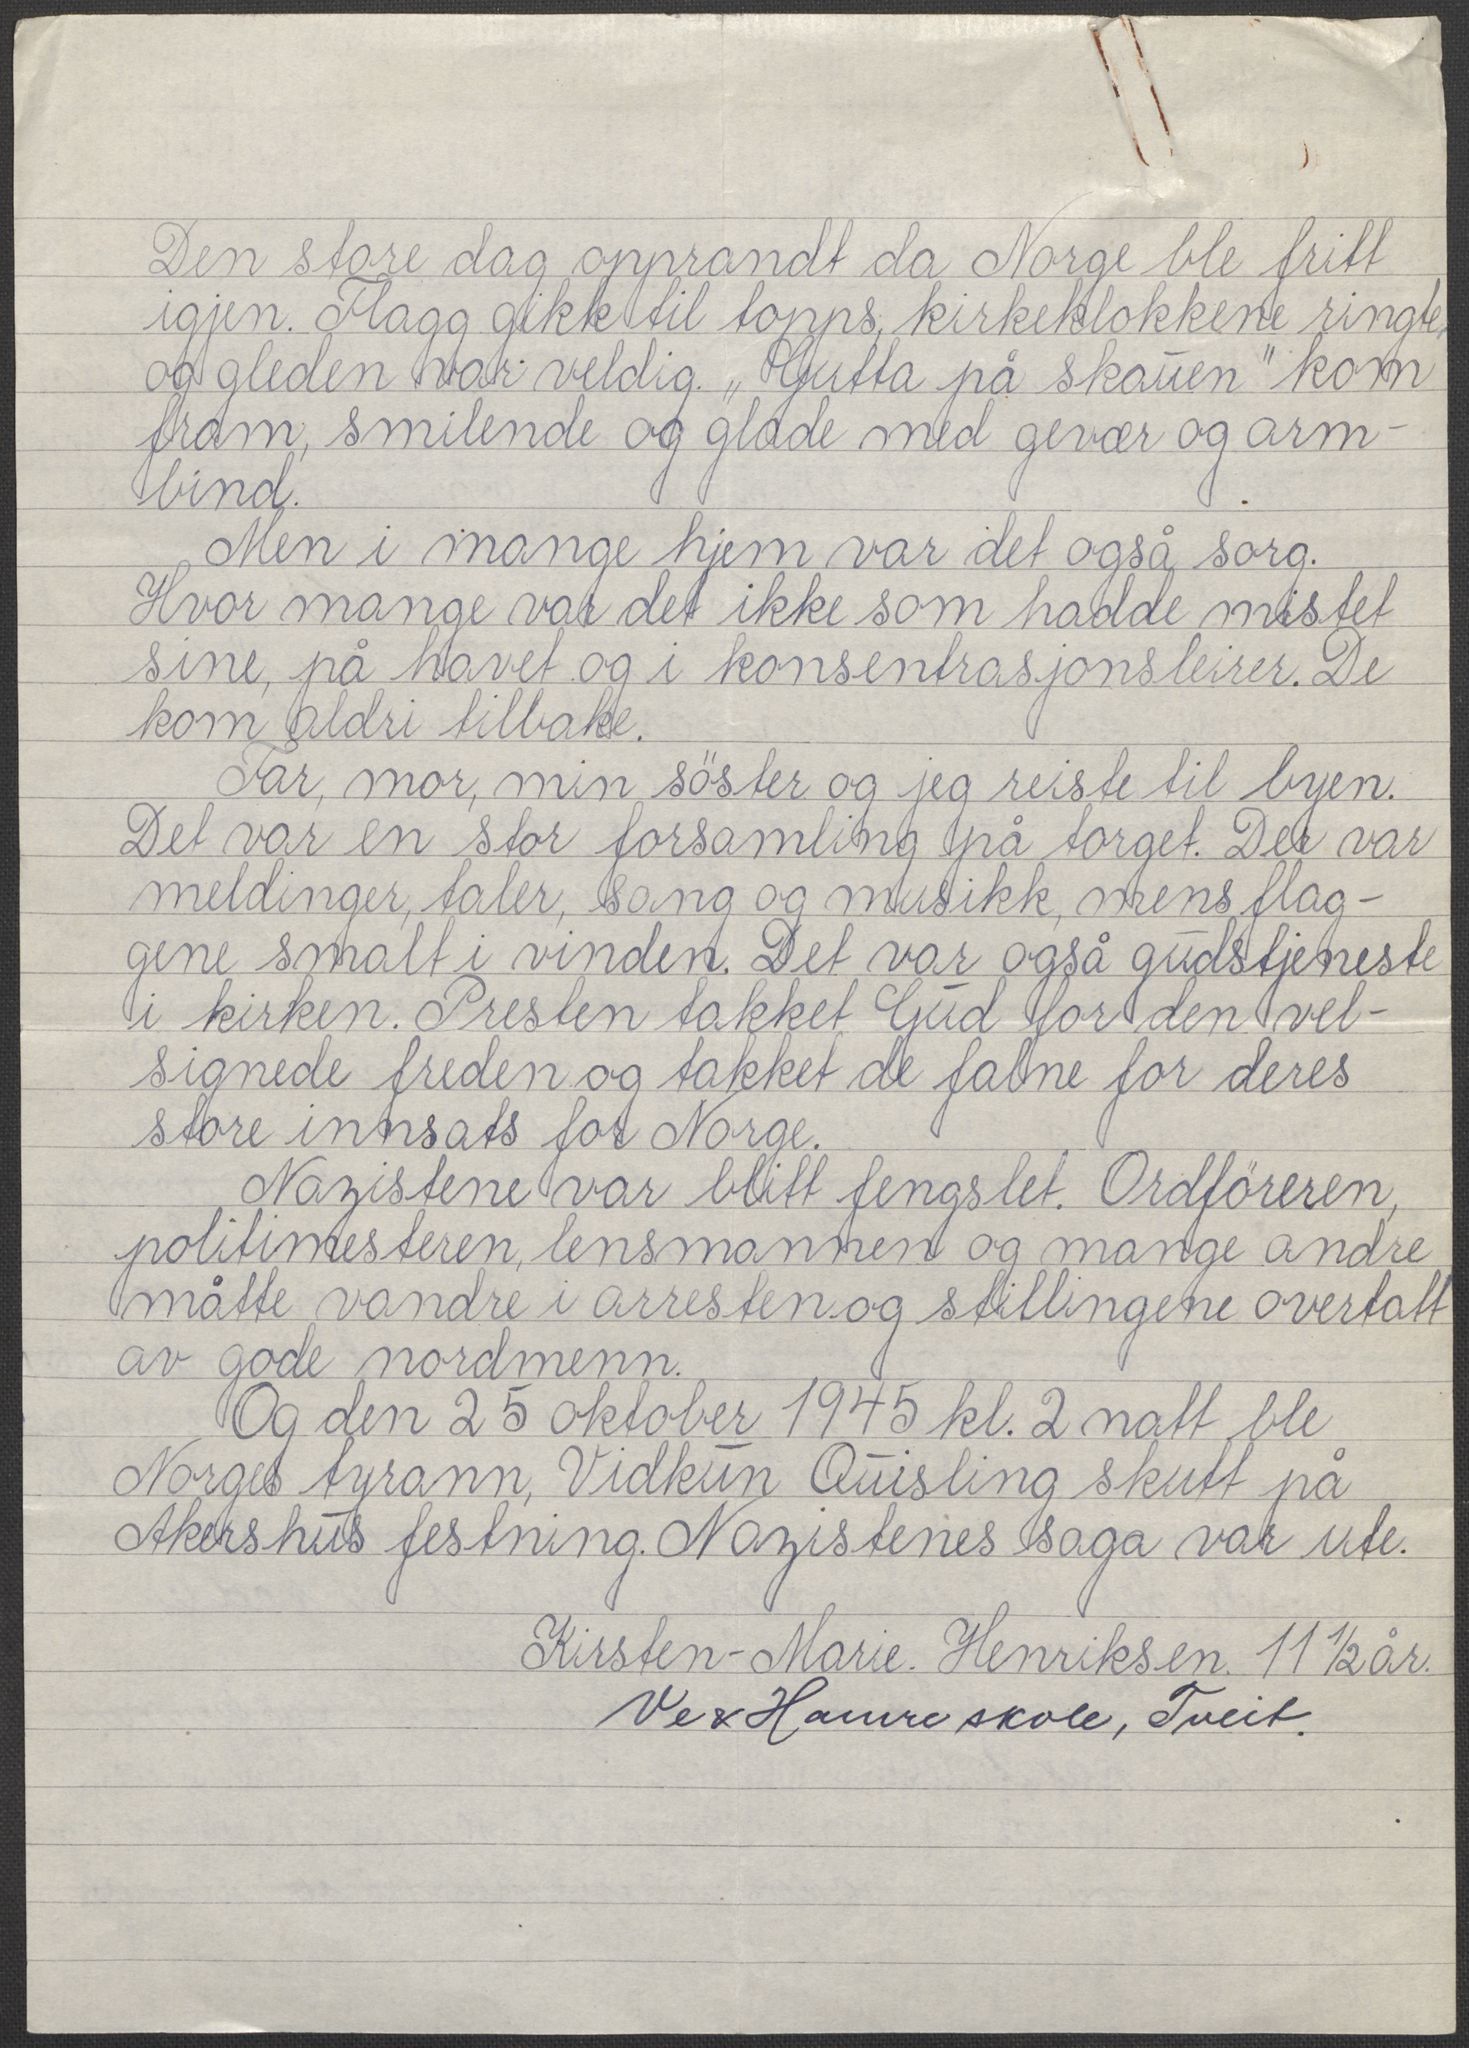 Den store dag opprandt da Norge ble fritt
igjen. Flagg gikk til topps, kirkeklokkene ringte,
og gleden var veldig. „Gutta på skauen" kom
fram, smilende og glade med gevær og arm-
bind.
Men i mange hjem var det også sorg.
Hvor mange var det ikke som hadde mistet
sine, på havet og i konsentrasjonsleirer. De
kom aldri tilbake.
Far, mor, min söster og jeg reiste til byen.
Det var en stor forsamling på torget. Der var
meldinger, taler, sang og musikk, mens flag-
gene smalt i vinden. Det var også gudstjeneste
i kirken. Presten takket Gud for den vel-
signede freden og takket de falne for deres
store innsats for Norge.
Nazistene var blitt fengslet. Ordföreren,
politimesteren, lensmannen og mange andre
måtte vandre i arresten og stillingene overtatt
av gode nordmenn.
Og den 25 oktober 1945 kl. 2 natt ble
Norges tyrann, Vidkun Quisling skutt på
Akershus festning. Nazistenes saga var ute.
Kirsten-Marie. Henriksen. 11 1/2 år.
Ve & Hamre skole, Tveit.